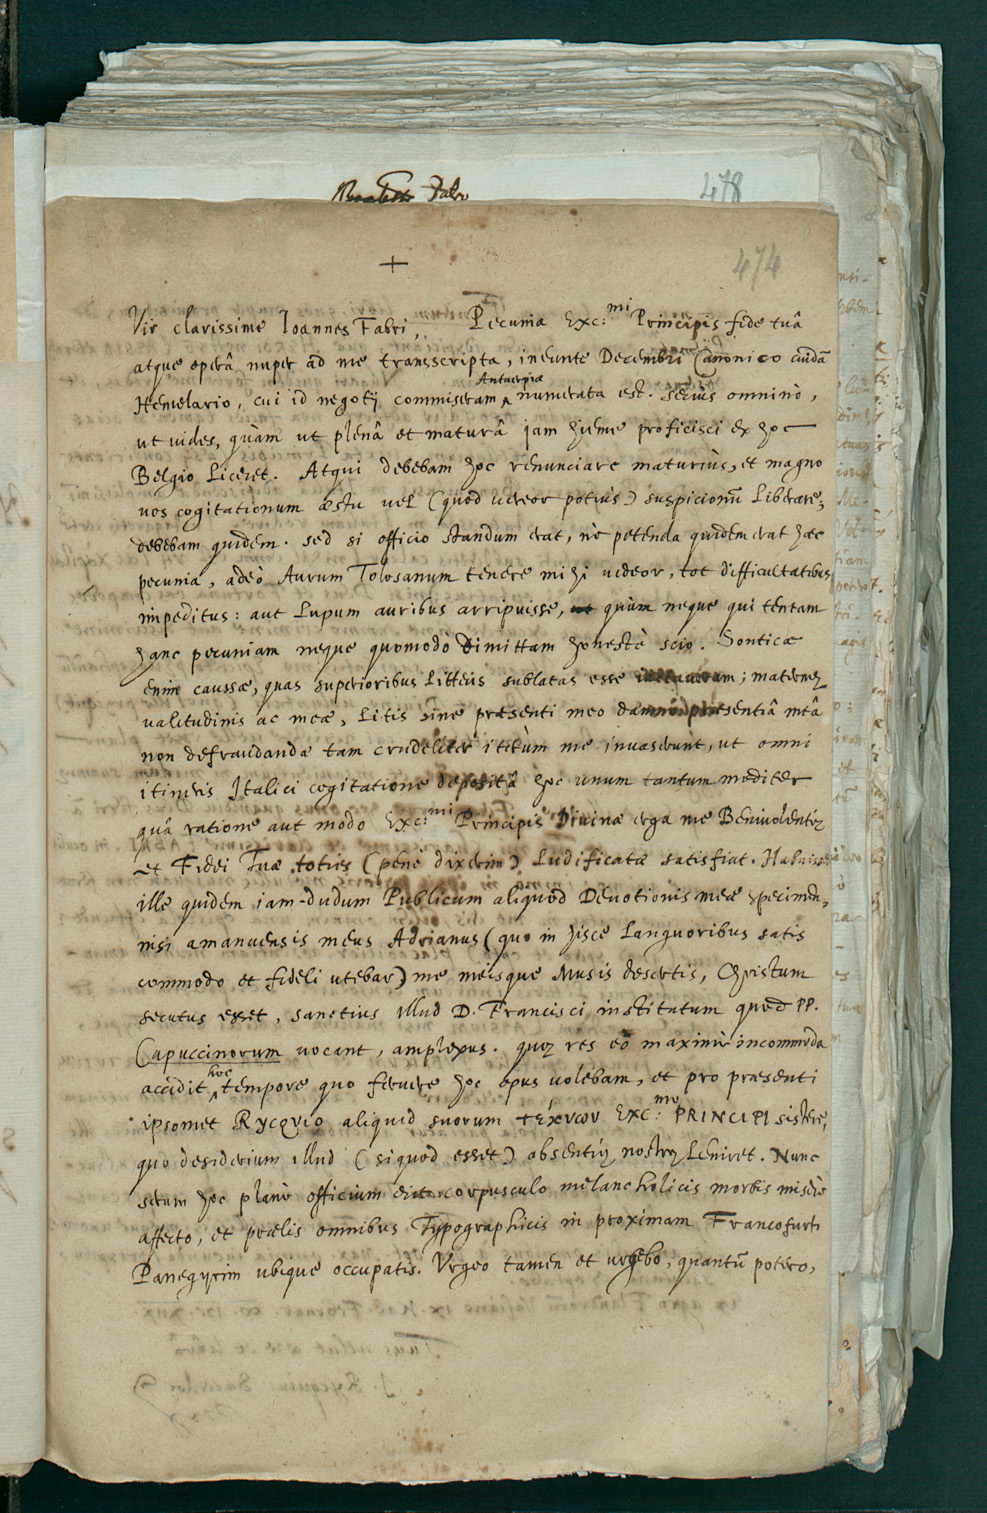 478
Fabr
474
+
Vir clarissime Ioannes Fabri, Pecunia Exc:mi Principis fide tuâ
atque operâ nuper ad me transscripta, ineunte Decembri Canonico cuidā
Hemelario, cui id negotij commiseram ^Antuerpiæ numerata est. Seriùs omninò,
ut vides, quàm ut plenâ et maturâ jam hieme proficisci ex hoc
Belgio liceret. Atqui debebam hoc renunciare maturiùs, et magno
vos cogitationum æstu vel (quod vereor potiùs) suspicionū liberare;
debebam quidem. sed si officio standum erat, nè petenda quidem erat hæc
pecunia, adeò Aurum Tolosanum tenere mihi videor, tot difficultatibus
impeditus: aut Lupum auribus arripuisse, quùm neque qui teneam
hanc pecuniam neque quomodò dimittam honestè scio. Sonticæ
enim caussæ, quas superioribus litteris sublatas esse; maternæ
valitudinis ac meæ, Litis sine præsenti meo damno præsentiâ meâ
non defraudandæ tam crudeliter iterùm me invaserunt, ut omni
itineris Italici cogitatione depositâ hoc unum tantum mediter
quâ ratione aut modo Exc:mi Principis Divinæ erga me Benivolentiæ
et Fidei Tuæ toties (penè dixerim) ludificatæ satisfiat. Habuisset
ille quidem iam-dudum Publicum aliquod Devotionis meæ specimen,
nisi amanuensis meus Adrianus (quo in hisce languoribus satis
commodo et fideli utebar) me meisque Musis desertis, Christum
secutus esset, sanctius illud D. Francisci institutum quod PP.
Capuccinorum vocant, amplexus. quæ res eò maximè incommoda
accidit, ^hoc tempore quo fervere hoc opus volebam, et pro præsenti
ipsomet Rycquio aliquid suorum τέκνων Exc:mo PRINCIPI sistere,
quo desiderium illud (siquod esset) absentiæ nostræ leniret. Nunc
serum hoc planè officium erit corpusculo melancholicis morbis miserè
affecto, et prælis omnibus Typographicis in proximam Francofurti
Panegyrim ubique occupatis. Urgeo tamen et urgebo, quantū potero,